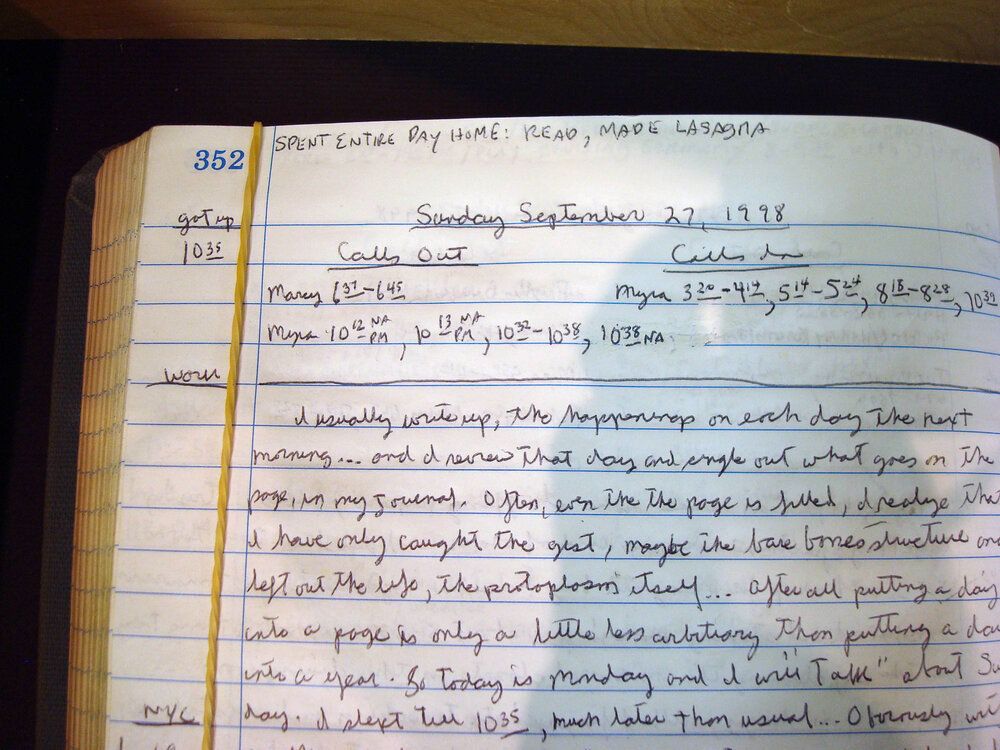 SPENT ENTIRE DAY HOME: READ, MADE LASAGNA
352
got up
Sunday September 27, 1998
10 35
Calls Out
Calls In
Marcy 6 37 - 6 45
Myra 3 20 - 4 14, 5 14 - 5 24, 8 18 - 8 28, 10 39
Myra 10 12 NA PM, 10 13 NA PM, 10 32 - 10 38, 10 38 NA
Work
I usually write up, the happenings on each day the next
morning... and I review that day and single out what goes on the
page, in my journal. Often, even the the page is filled, I realize that
I have only caught the gist, maybe the bare bones structure and
left out the life, the protoplasm itself... After all putting a day
into a page is only a little less arbitiary than putting a day
into a year. So today is Monday and I will "Talk" about Sun
NYC
day. I slept till 10 35, much later than usual... Obviously